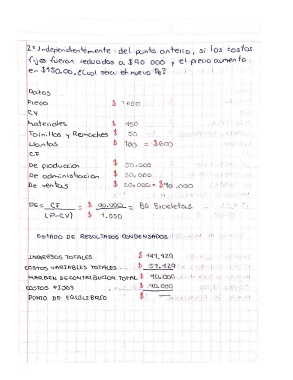 2.- Independientemente del punto anterio, si los costos
fijos fueron reducidos a $90 000 y el precio aumenta
en $150.00. ¿Cual sera el nuevo Pe?
Datos
Precio $ 1650
CV
Materiales $ 450
Tornillos y Remaches $ 50
Llantas $ 100 = $600
C.F
De produccion $ 50.000
De administracion $ 20,000
De ventas $ 20,000 = $90.000
PE = CF = $ 90.000 = 86 Bicicletas
(P-CV) $ 1.050
ESTADO DE RESULTADOS CONDENSADOS
INGRESOS TOTALES $ 141,429
COSTOS VARIABLES TOTALES $ 51,429
MARGEN DE CONTRIBUCION TOTAL $ 90.000
COSTOS FIJOS $ 90.000
PUNTO DE EQUILIBRIO $ —